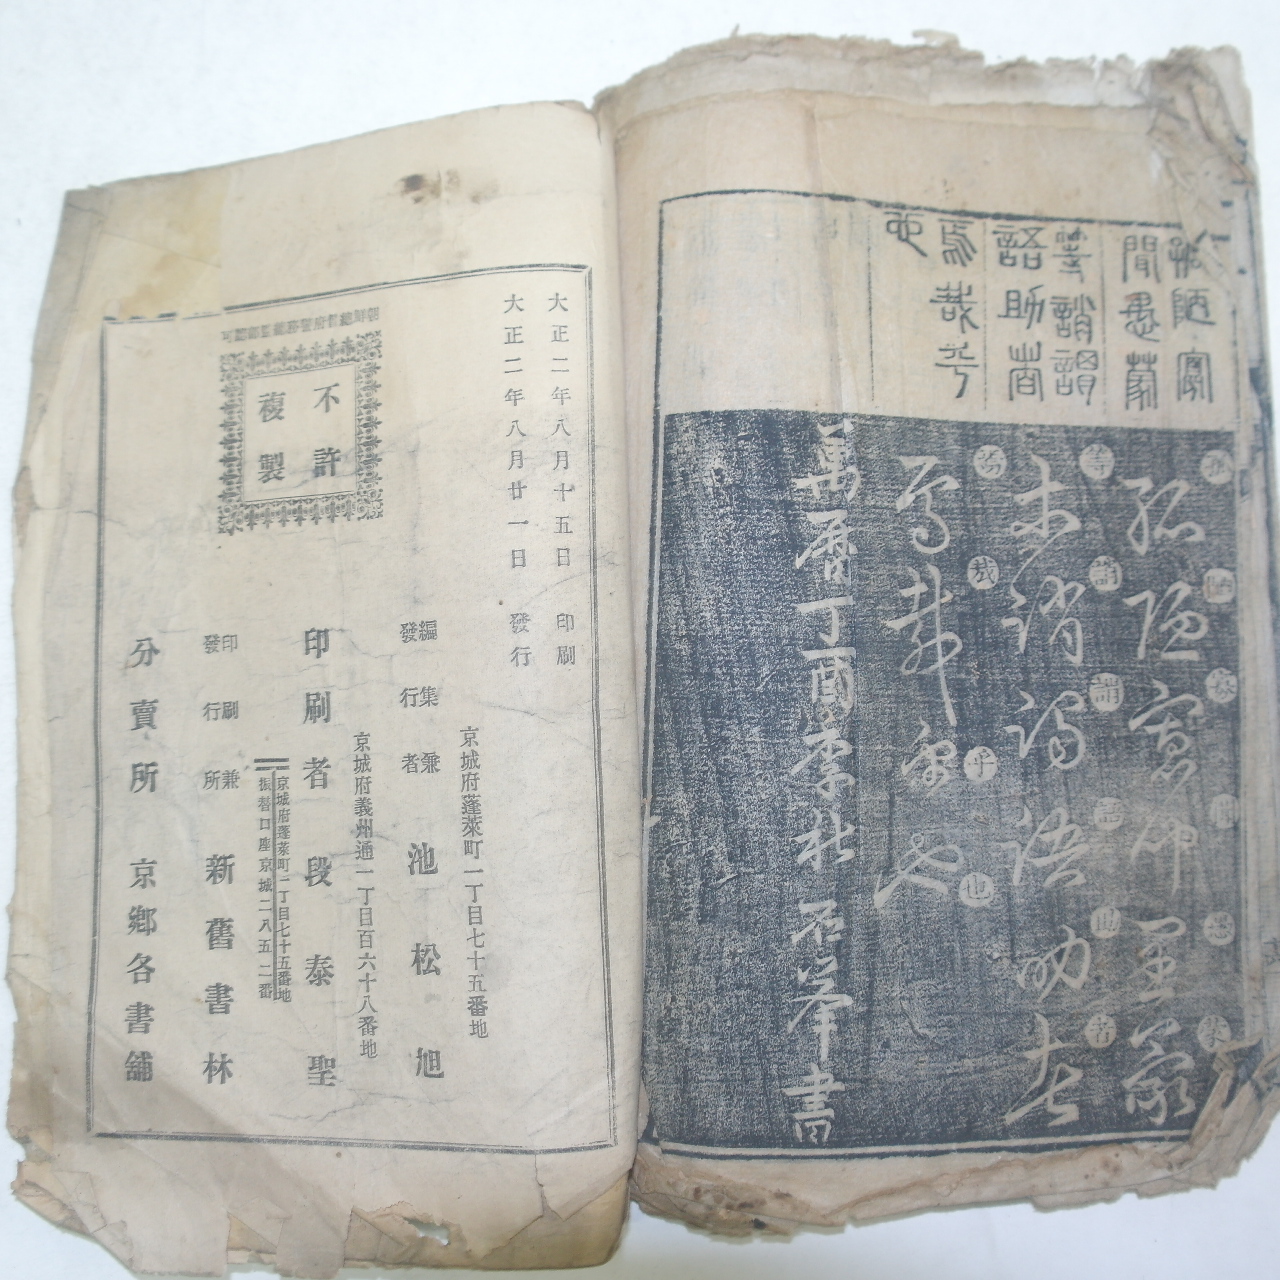 孤陋寡
聞愚蒙
等誚謂
語助者
焉哉乎
也
孤陋寡聞愚蒙
孤陋寡聞愚蒙
等誚謂語助者
等誚謂語助者
焉哉乎也
焉哉乎也
萬曆丁酉季秋石峯書
大正二年八月十五日 印刷
大正二年八月廿一日 發行
京城府蓬萊町一丁目七十五番地
編集兼
發行者 池松旭
京城府義州通一丁目百六十八番地
印刷者 段泰聖
京城府蓬萊町一丁目七十五番地
振替口座京城二八五二番
印刷兼
發行所 新舊書林
分賣所 京鄉各書舖
朝鮮總督府警務總監部認可
不許
複製